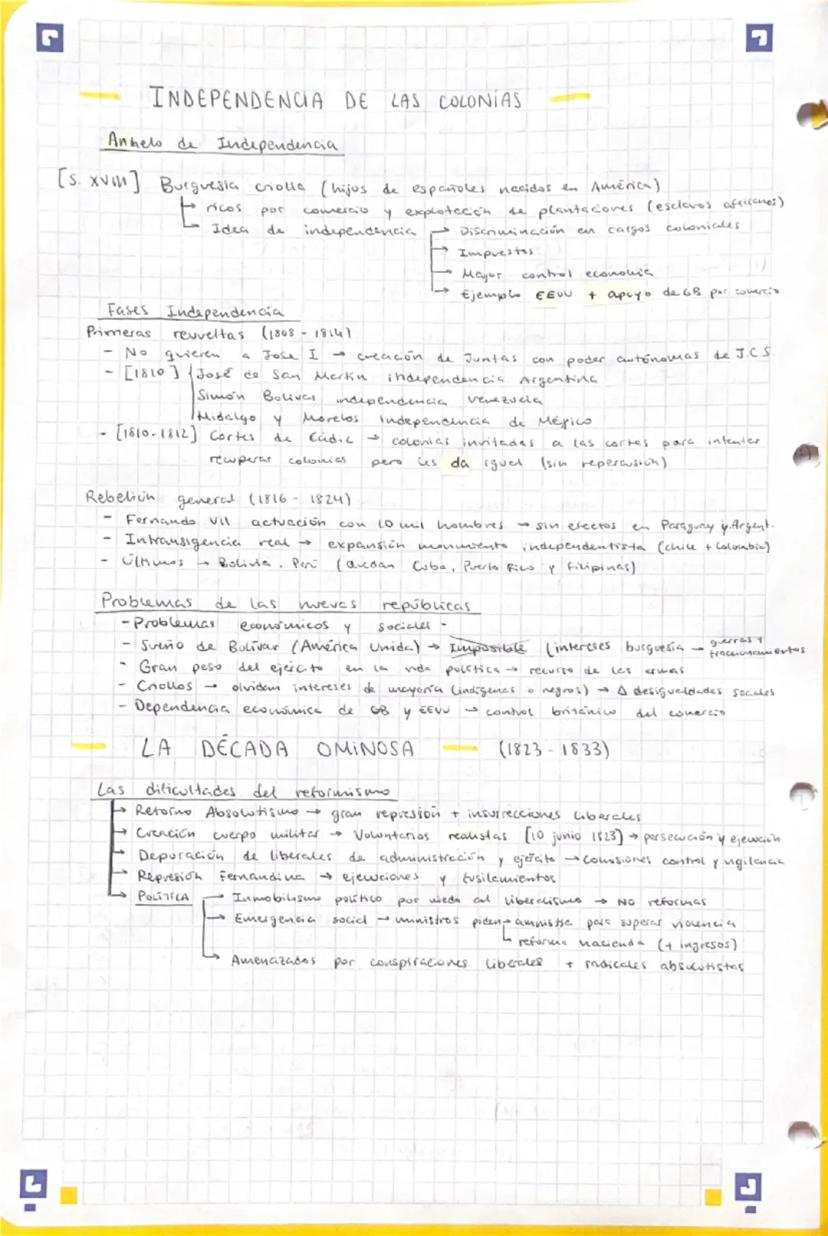 INDEPENDENCIA DE LAS COLONIAS
Anhelo de Independencia
[S. XVIII] Burguesía criolla (hijos de españoles nacidos en América)
↳ ricos por comercio y explotación de plantaciones (esclavos africanos)
↳ Idea de independencia → Discriminación en cargos coloniales
→ Impuestos
→ Mayor control economía
→ Ejemplo EEUU + apoyo de GB por comercio
Fases Independencia
Primeras revueltas (1808 - 1814)
- No quieren a Jose I → creación de Juntas con poder autónomas de J.C.S.
- [1810] José de San Martín independencia Argentina
Simón Bolivar independencia Venezuela
Hidalgo y Morelos independencia de México
- [1810-1812] Cortes de Cádiz → colonias invitadas a las cortes para intentar
recuperar colonias pero les da igual (sin repercusión)
Rebelión general (1816 - 1824)
- Fernando VII actuación con 10 mil hombres → sin efectos en Paraguay y Argent.
- Intransigencia real → expansión movimiento independentista (Chile + Colombia)
- Últimos → Bolivia, Perú (quedan Cuba, Puerto Rico y Filipinas)
Problemas de las nuevas repúblicas
- Problemas económicos y sociales -
- Sueño de Bolívar (América Unida) → Imposible (intereses burguesía → guerras y fraccionamientos
- Gran peso del ejército en la vida política → recurso de las armas
- Criollos → olvidan intereses de mayoría (indígenas o negros) → Δ desigualdades sociales
- Dependencia económica de GB y EEUU → control británico del comercio
LA DÉCADA OMINOSA (1823 - 1833)
Las dificultades del reformismo
→ Retorno Absolutismo → gran represión + insurrecciones liberales
→ Creación cuerpo militar → Voluntarios realistas [10 junio 1823] → persecución y ejecución
→ Depuración de liberales de administración y ejército → comisiones control y vigilancia
→ Represión Fernandina → ejecuciones y fusilamientos
→ POLÍTICA → Inmobilismo político por miedo al liberalismo → NO reformas
→ Emergencia social → ministros piden → amnistía para superar violencia
↳ reforma hacienda (+ ingresos)
↳ Amenazados por conspiraciones liberales + radicales absolutistas